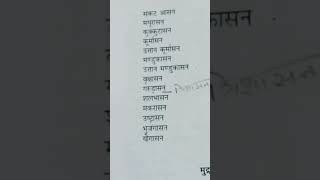 संकट आसन
मयूरासन
कुक्कुटासन
कूर्मासन
उत्तान कूर्मासन
मण्डुकासन
उत्तान मण्डुकासन
वृक्षासन
गरुडासन
शलभासन
मकरासन
उष्ट्रासन
भुजंगासन
योगासन
मुद्र